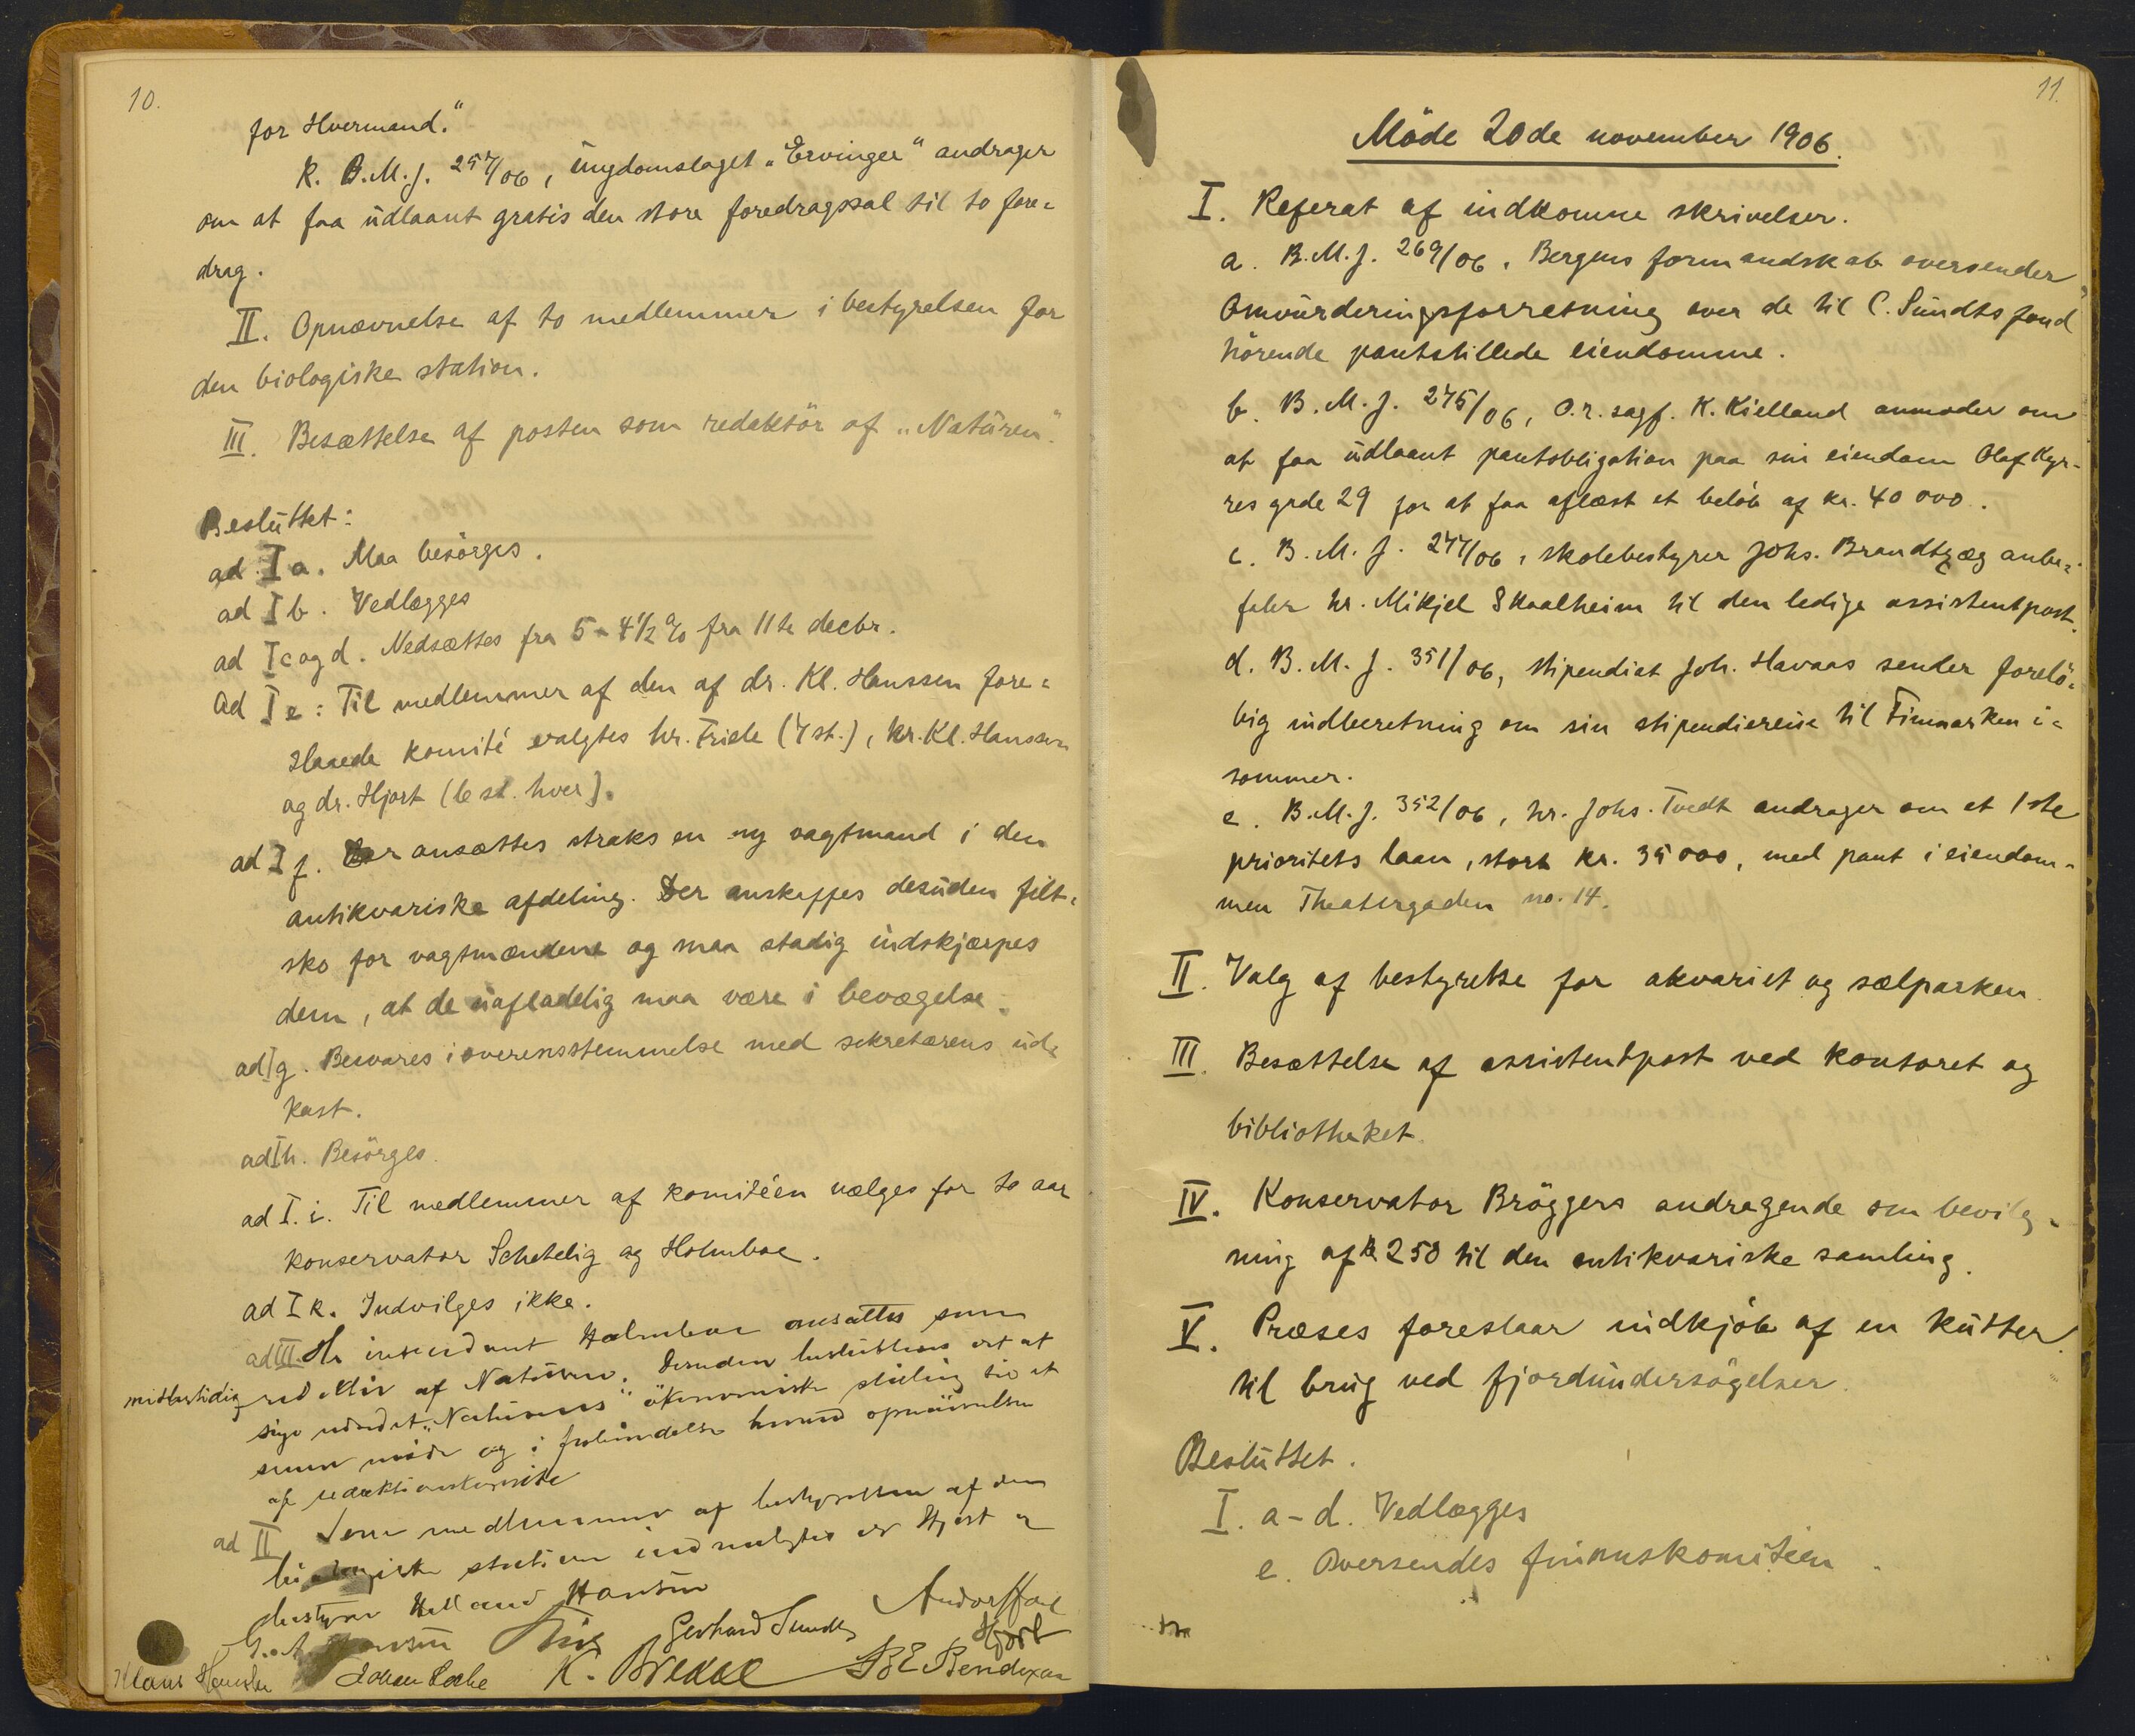 10.
for Hvermand."
K. B.M.J. 257/06, Ungdomslaget "Ervingen" andrager
om at faa udlaant gratis den store foredragssal til to fore=
drag.
II. Opnævnelse af to medlemmer i bestyrelsen for
den biologiske station.
III. Besættelse af posten som redaktör af "Naturen".
Besluttet:
ad I a. Maa besörges.
ad I b. Vedlægges
ad I c og d. Nedsættes fra 5 - 4½ % fra 11te decbr.
Ad I e: Til medlemmer af den af dr. Kl. Hanssen fore=
slaaede komité valgtes hr. Friele (7 st.), hr. Kl. Hanssen
og dr. Hjort (6 st. hver).
ad I f. Der ansættes straks en ny vagtmand i den
antikvariske afdeling. Der anskaffes desuden filt=
sko for vagtmændene og maa stadig indskjærpes
dem, at de uafladelig maa være i bevægelse.
ad I g. Besvares i overensstemmelse med sekretærens ud=
kast.
ad I h. Besörges.
ad I. i. Til medlemmer af komitéen vælges for to aar
konservator Schetelig og Holmboe.
ad I k. Indvilges ikke.
ad III. Hr intendant Holmboe ansættes som
midlertidig redaktör af Naturen. Desuden besluttedes det at
"Naturens" ökonomiske stilling til et
senere möde og i forbindelse hermed opnævnelse
af redaktionskomite
ad II Som medlemmer af bestyrelsen af den
biologiske station indvalgtes dr Hjort og
bestyrer Helland Hansen
Gerhard Sundt
Hjort
Klaus Hanssen Johan Bøgh K. Bredal B E Bendixen
11.
Möde 20de november 1906.
I. Referat af indkomne skrivelser.
a. B.M.J. 269/06, Bergens formandskab oversender
Omvurderingsforretning over de til C. Sundts fond
hörende pantstillede eiendomme.
b. B.M.J. 275/06, O.r. sagf. K. Kielland anmoder om
at faa udlaant pantobligation paa sin eiendom Olaf Kyr-
res gade 29 for at faa aflæst et belöb af kr. 40 000.
c. B.M.J. 277/06, skolebestyrer Johs. Brandtzæg anbe=
faler hr. Mikjel Skaalheim til den ledige assistentpost.
d. B.M.J. 351/06, stipendiat Joh. Havaas sender forelö=
big indberetning om sin stipendiereise til Finmarken i=
sommer.
e. B.M.J. 352/06, hr. Johs. Tvedt andrager om et 1ste
prioritets laan, stort kr. 35 000, med pant i eiendom-
men Theatergaden no. 14.
II. Valg af bestyrelse for akvariet og sælparken.
III. Besættelse af assistentpost ved kontoret og
bibliotheket.
IV. Konservator Bröggers andragende om bevilg-
ning af kr 250 til den antikvariske samling.
V. Præses foreslaar indkjöb af en kutter
til brug ved fjordundersögelser.
Besluttet.
I. a-d. Vedlægges
e. Oversendes finanskomitéen.